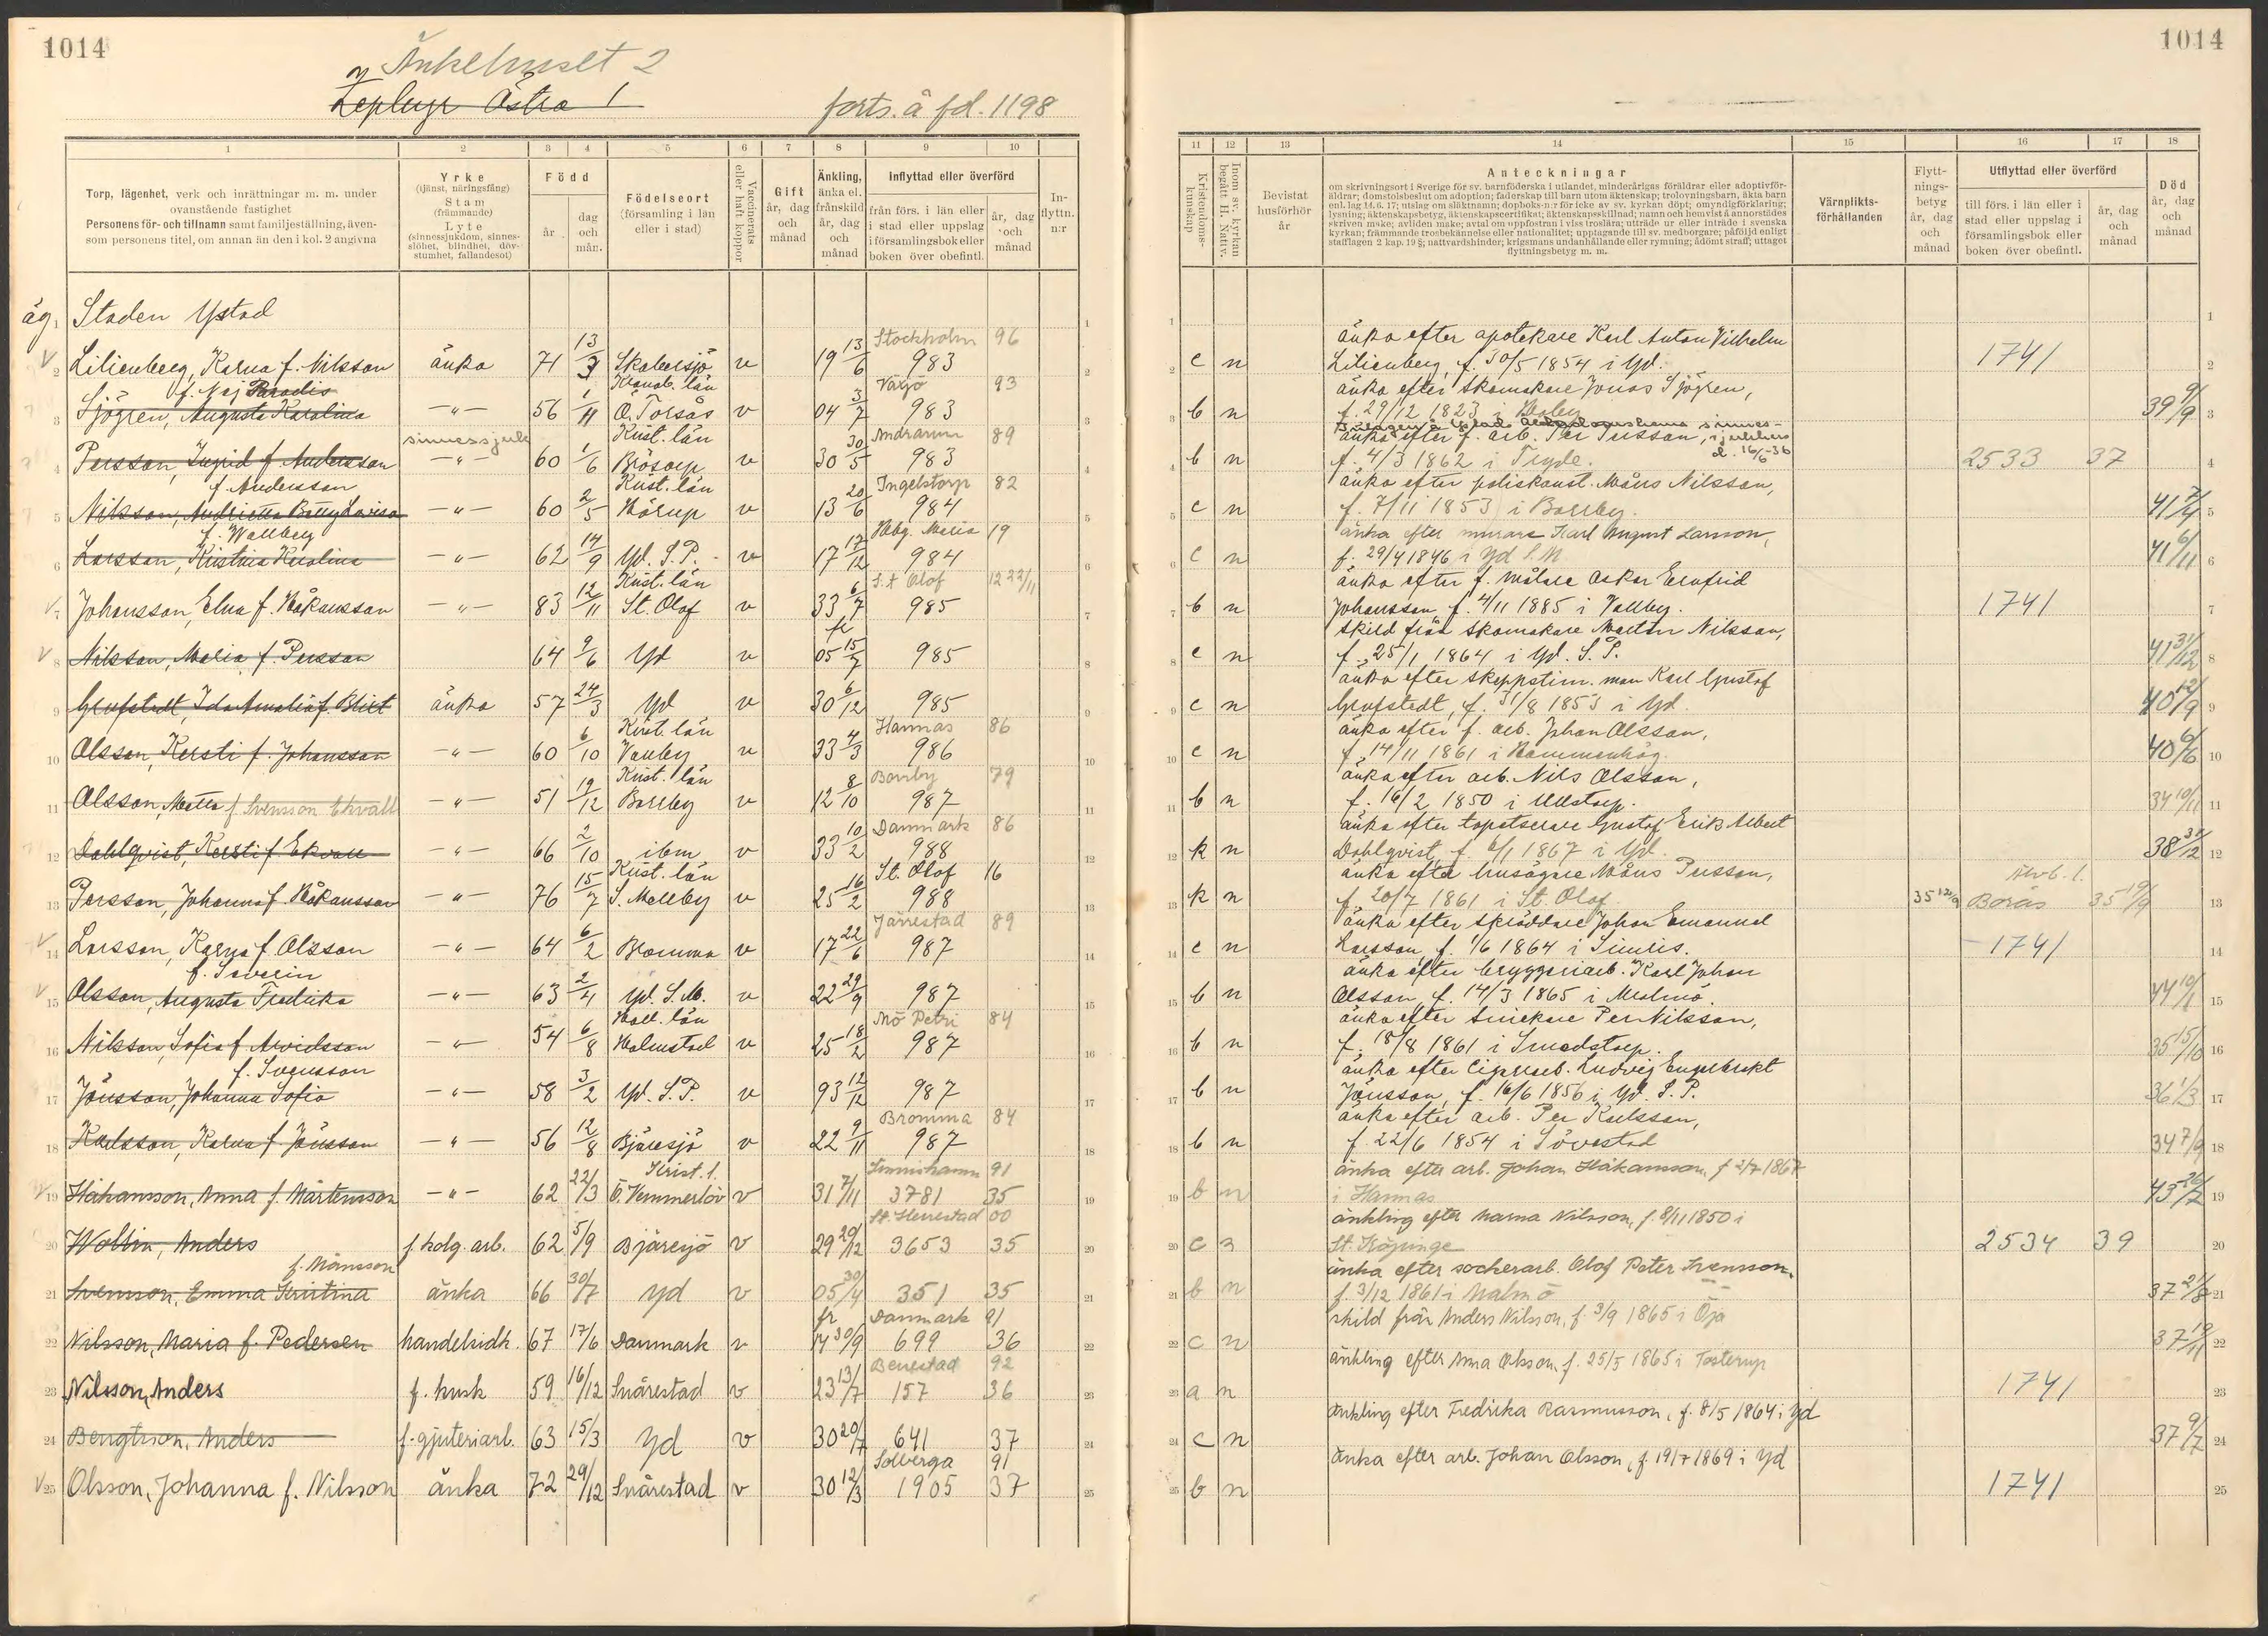 1014
1014
Änkehuset 2
Östra 1
forts. å fd. 1198
1 2 3 4 5 6 7 8 9 10
Torp, lägenhet, verk och inrättningar m. m. under ovanstående fastighet
Personens för- och tillnamn samt familjeställning, även-
som personens titel, om annan än den i kol. 2 angivna
Yrke
(tjänst, näringsfång)
Stam
(främmande)
Lyte
(sinnessjukdom, sinnes-
slöhet, blindhet, döv-
stumhet, fallandesot)
Född
år
dag och mån.
Födelseort
(församling i län eller i stad)
Vaccinerats eller haft koppor
Gift
år, dag och månad
Änkling, änka el. frånskild
år, dag och månad
Inflyttad eller överförd
från förs. i län eller i stad eller uppslag i församlingsbok eller boken över obefintl.
år, dag och månad
In-flyttn. n:r
11 12 13 14 15 16 17 18
Kristendoms-kunskap
Inom sv. kyrkan begått H. Nattv.
Bevistat husförhör år
Anteckningar
om skrivningsort i Sverige för sv. barnföderska i utlandet, minderårigas föräldrar eller adoptivför-
äldrar; domstolsbeslut om adoption; faderskap till barn utom äktenskap; trolovningsbarn, äkta barn
enl. lag 14. 6. 17; utslag om släktnamn; dopboks-n:r för icke av sv. kyrkan döpt; omyndigförklaring;
lysning; äktenskapsbetyg, äktenskapscertifikat; äktenskapsskillnad; namn och hemvist å annorstädes
skriven make; avliden make; avtal om uppfostran i viss troslära; utträde ur eller inträde i svenska
kyrkan; främmande trosbekännelse eller nationalitet; upptagande till sv. medborgare; påföljd enligt
strafflagen 2 kap. 19 §; nattvardshinder; krigsmans undanhållande eller rymning; ådömt straff; uttaget
flyttningsbetyg m. m.
Värnplikts-förhållanden
Flytt-nings-betyg
år, dag och månad
Utflyttad eller överförd
till förs. i län eller i stad eller uppslag i församlingsbok eller boken över obefintl.
år, dag och månad
Död
år, dag och månad
äg. 1 Staden Ystad
Stockholm 96 änka efter apotekare Karl Anton Vilhelm
2 Lilienberg, Karna f. Nilsson änka 71 13/3 Skabersjö v 19 13/6 983 c n Lilienberg, f. 30/5 1854 i Yd. 1741
f. Maj Paradis Kronob. län Växjö 93 änka efter skomakare Jonas Sjögren,
3 Sjögren, Augusta Karolina -"- 56 1/11 Ö. Torsås v 04 3/7 983 b n f. 29/12 1823 i 39 9/9
sinnessjuk Krist. län Andrarum 89 änka efter f. arb. Per Persson, d. 16/6-36
4 Persson, Ingrid f. Andersson -"- 60 1/6 Brösarp v 30 30/5 983 b n f. 4/3 1862 i Tryde. 2533 37
f. Andersson Krist. län Ingelstorp 82 änka efter poliskonst. Måns Nilsson,
5 Nilsson, Andrietta Betty Lovisa -"- 60 2/5 Hörup v 13 20/6 984 c n f. 7/11 1853 i Borrby. 41 7/4
f. Wallberg Hbg. Maria 19 änka efter murare Karl August Larsson,
6 Larsson, Kristina Karolina -"- 62 14/9 Yd. S.P. v 17 17/12 984 c n f. 29/4 1846 i Yd S.M 41 6/11
Krist. län S:t Olof 12 22/11 änka efter f. målare Oskar Ernfrid
7 Johansson, Elna f. Håkansson -"- 83 12/11 St. Olof v 33 6/7 985 b n Johansson, f. 4/11 1885 i Vallby. 1741
fr skild från skomakare Martin Nilsson,
8 Nilsson, Maria f. Persson 64 9/6 Yd v 05 15/7 985 c n f. 25/1 1864 i Yd. S.P. 41 31/12
änka efter skeppstim. man Karl Gustaf
9 Grufstedt, Ida Amalia f. Blixt änka 57 24/3 Yd v 30 6/12 985 c n Grufstedt, f. 31/8 1853 i Yd. 40 12/9
Krist. län Hannas 86 änka efter f. arb. Johan Olsson,
10 Olsson, Kersti f. Johansson -"- 60 6/10 Vanby v 33 4/3 986 c n f. 14/11 1861 i Hammenhög. 40 6/6
Krist. län Borrby 79 änka efter arb. Nils Olsson,
11 Olsson, Metta f Svensson Ekvall -"- 51 17/12 Borrby v 12 8/10 987 b n f. 16/2 1850 i Ullstorp. 34 10/11
Danmark 86 änka efter tapetserare Gustaf Erik Albert
12 Dahlqvist, Kersti f. Ekvall -"- 66 2/10 ibm v 33 10/2 988 k n Dahlqvist, f. 6/1 1867 i Yd. 38 31/12
Krist. län St. Olof 16 änka efter husägare Måns Persson, Älvsb. l.
13 Persson, Johanna f. Håkansson -"- 76 15/7 S. Mellby v 25 16/2 988 k n f. 20/7 1861 i St. Olof. Borås 35 19/9
Järrestad 89 änka efter skräddare Johan Emanuel
14 Larsson, Karna f. Olsson -"- 64 6/2 Bromma v 17 22/6 987 c n Larsson, f. 1/6 1864 i Simris. 1741
f. Severin änka efter bryggeriarb. Karl Johan
15 Olsson, Augusta Fredrika -"- 63 2/4 Yd. S.M. v 22 29/9 987 b n Olsson, f. 14/3 1865 i Malmö. 44 10/1
Hall. län Mö Petri 84 änka efter snickare Per Nilsson,
16 Nilsson, Sofia f. Arvidsson -"- 54 6/8 Halmstad v 25 18/2 987 b n f. 18/8 1861 i Smedstorp. 35 15/10
f. Svensson änka efter cigarrarb. Ludvig Engelbrekt
17 Jönsson, Johanna Sofia -"- 58 3/2 Yd. S.P. v 93 12/12 987 b n Jönsson, f. 16/6 1856 i Yd. S.P. 36 1/3
Bromma 84 änka efter arb. Per Karlsson,
18 Karlsson, Karna f. Jönsson -"- 56 12/8 Bjäresjö v 22 9/11 987 b n f. 22/6 1854 i Sövestad 34 7/9
Krist. l. Simrishamn 91 änka efter arb. Johan Håkansson, f 2/7 1867
19 Håkansson, Anna f. Mårtensson -"- 62 22/3 Ö. Vemmerlöv v 31 7/11 3781 35 b n i Hannas 43 26/7
St. Herrestad 00 änkling efter Marna Nilsson, f. 8/11 1850 i
20 Woltin, Anders f. kolg. arb. 62 5/9 Bjäresjö v 29 29/12 3653 35 c n St. Köpinge 2534 39
f. Månsson änka efter sockerarb. Olof Peter Svensson,
21 Svensson, Emma Kristina änka 66 30/7 Yd v 05 30/4 351 35 b n f. 3/12 1861 i Malmö 37 21/8
fr Danmark 91 skild från Anders Nilsson, f. 3/9 1865 i Öja
22 Nilsson, Maria f. Pedersen handelsidk. 67 17/6 Danmark v 14 30/9 699 36 c n 37 19/11
Benestad 92 änkling efter Anna Olsson, f. 25/5 1865 i Tosterup
23 Nilsson, Anders f. kusk 59 16/12 Snårestad v 23 13/7 157 36 a n 1741
änkling efter Fredrika Rasmusson, f. 8/5 1864 i Yd
24 Bengtsson, Anders f. gjuteriarb. 63 15/3 Yd v 30 20/7 641 37 c n 37 9/7
Solberga 91 änka efter arb. Johan Olsson, f. 19/7 1869 i Yd
25 Olsson, Johanna f. Nilsson änka 72 29/12 Snårestad v 30 12/3 1905 37 b n 1741